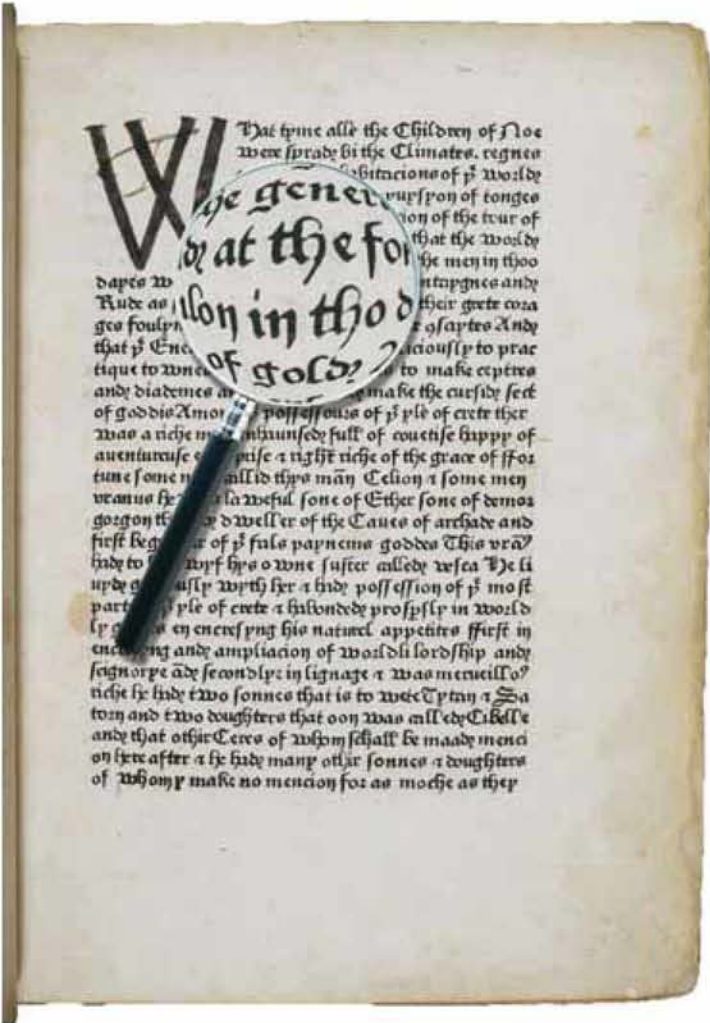 What tyme alle the Children of Noe
were sprad bi the Climates. regnes
bitacions of þe world
uysyon of tonges
ion of the tour of
that the world
he men in thoo
dayes w ntaygnes and
Rude as their grete cora
ges foulyn
that þe Enc iciously to prac
tique to make ceptres
and diademes a make the cursid sect
of goddis Amon possessours of þe yle of crete ther
was a riche m nhaunsed full of couetise happy of
auentureuse e prise ⁊ right riche of the grace of ffor
tune some m allid thys man Celion ⁊ some men
vranus he laweful sone of Ether sone of demor
gorgon th dweller of the Caues of archade and
first beg r of þe fals paynems goddes This
had to wyf hys owne suster called vesca He li
uyd g usly wyth her ⁊ had possession of þe most
part yle of crete ⁊ habonded prospsly in world
ly g en encresyng his naturel appetites ffirst in
enc ng and ampliacion of worldli lordship and
seignorye and secondly in lignage ⁊ was
riche he had two sonnes that is to wete Tytan ⁊ Sa
torn and two doughters that oon was called Cibelle
and that othir Ceres of whom schall be maad menci
on here after ⁊ he had many othir sonnes ⁊ doughters
of whom y make no mencion for as moche as they
he gener
d at the for
ilon in tho d
of gold